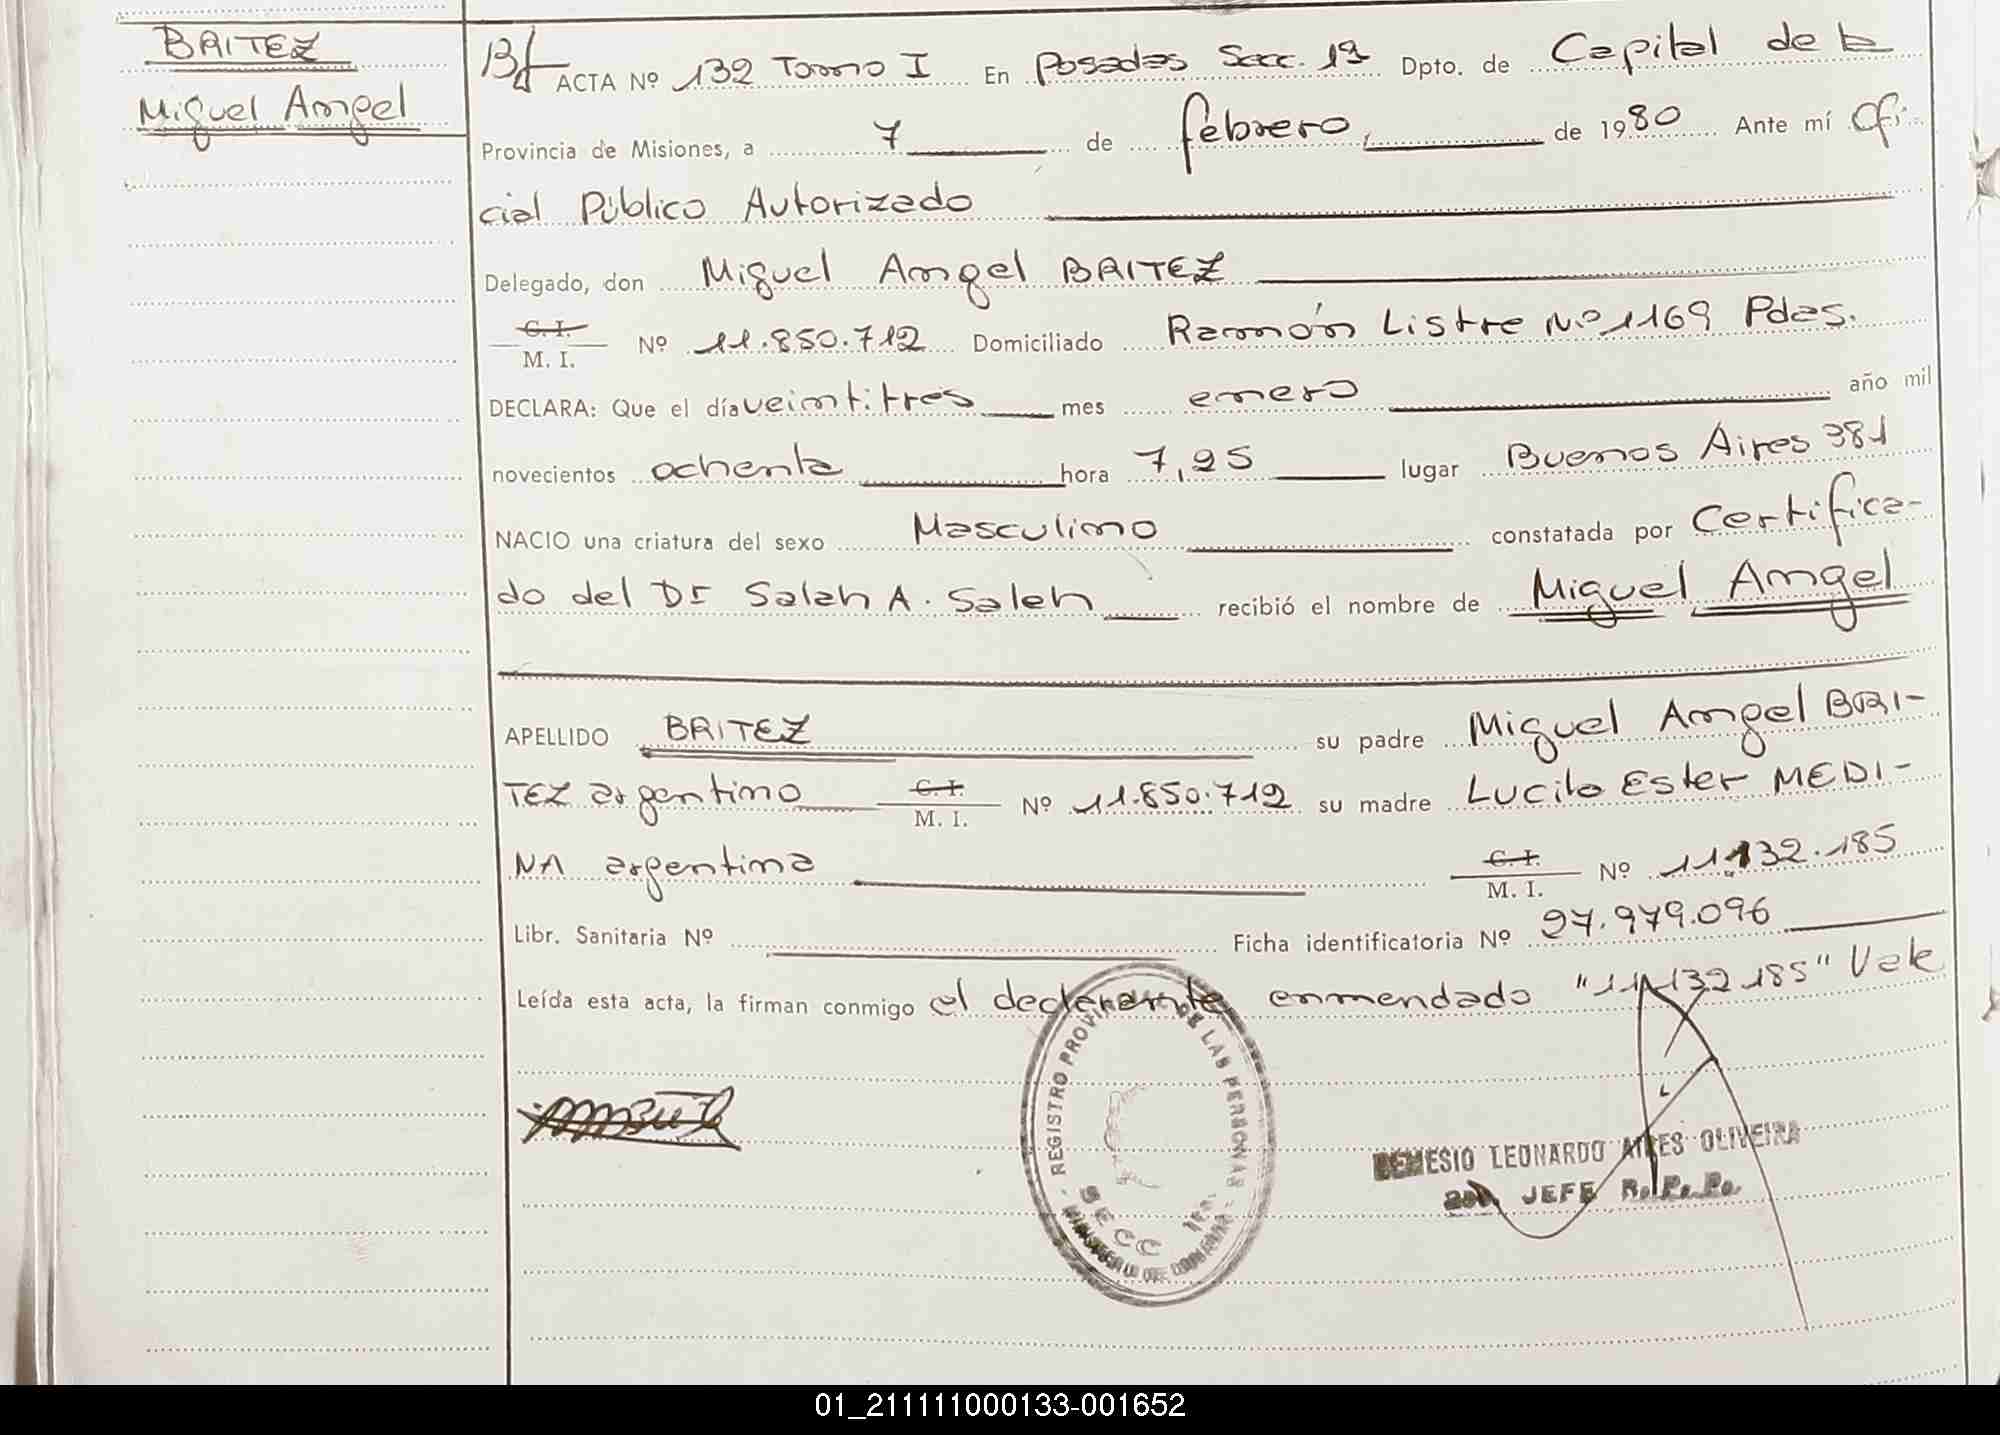 BRITEZ
Miguel Angel
ACTA Nº 132 Tomo I En Posadas Secc. 1ª Dpto. de Capital de la
Provincia de Misiones, a 7 de febrero, de 1980 Ante mí Ofi-
cial Público Autorizado
Delegado, don Miguel Angel BRITEZ
C. I.
M. I. Nº 11.850.712 Domiciliado Ramón Listre Nº 1169 Pdas.
DECLARA: Que el día veintitres mes enero año mil
novecientos ochenta hora 7,25 lugar Buenos Aires 381
NACIO una criatura del sexo Masculino constatada por Certifica-
do del Dr Salah A. Saleh recibió el nombre de Miguel Angel
APELLIDO BRITEZ su padre Miguel Angel BRI-
TEZ argentino C. I.
M. I. Nº 11.850.712 su madre Lucila Ester MEDI-
NA argentina C. I.
M. I. Nº 11.132.185
Libr. Sanitaria Nº Ficha identificatoria Nº 27.979.096
Leída esta acta, la firman conmigo el declarante enmendado "11.132.185" Vale
REGISTRO PROVINCIAL DE LAS PERSONAS
SECC 1ra.
MINISTERIO DE GOBIERNO
NEMESIO LEONARDO AIRES OLIVEIRA
JEFE R. P. P.
01_211111000133-001652